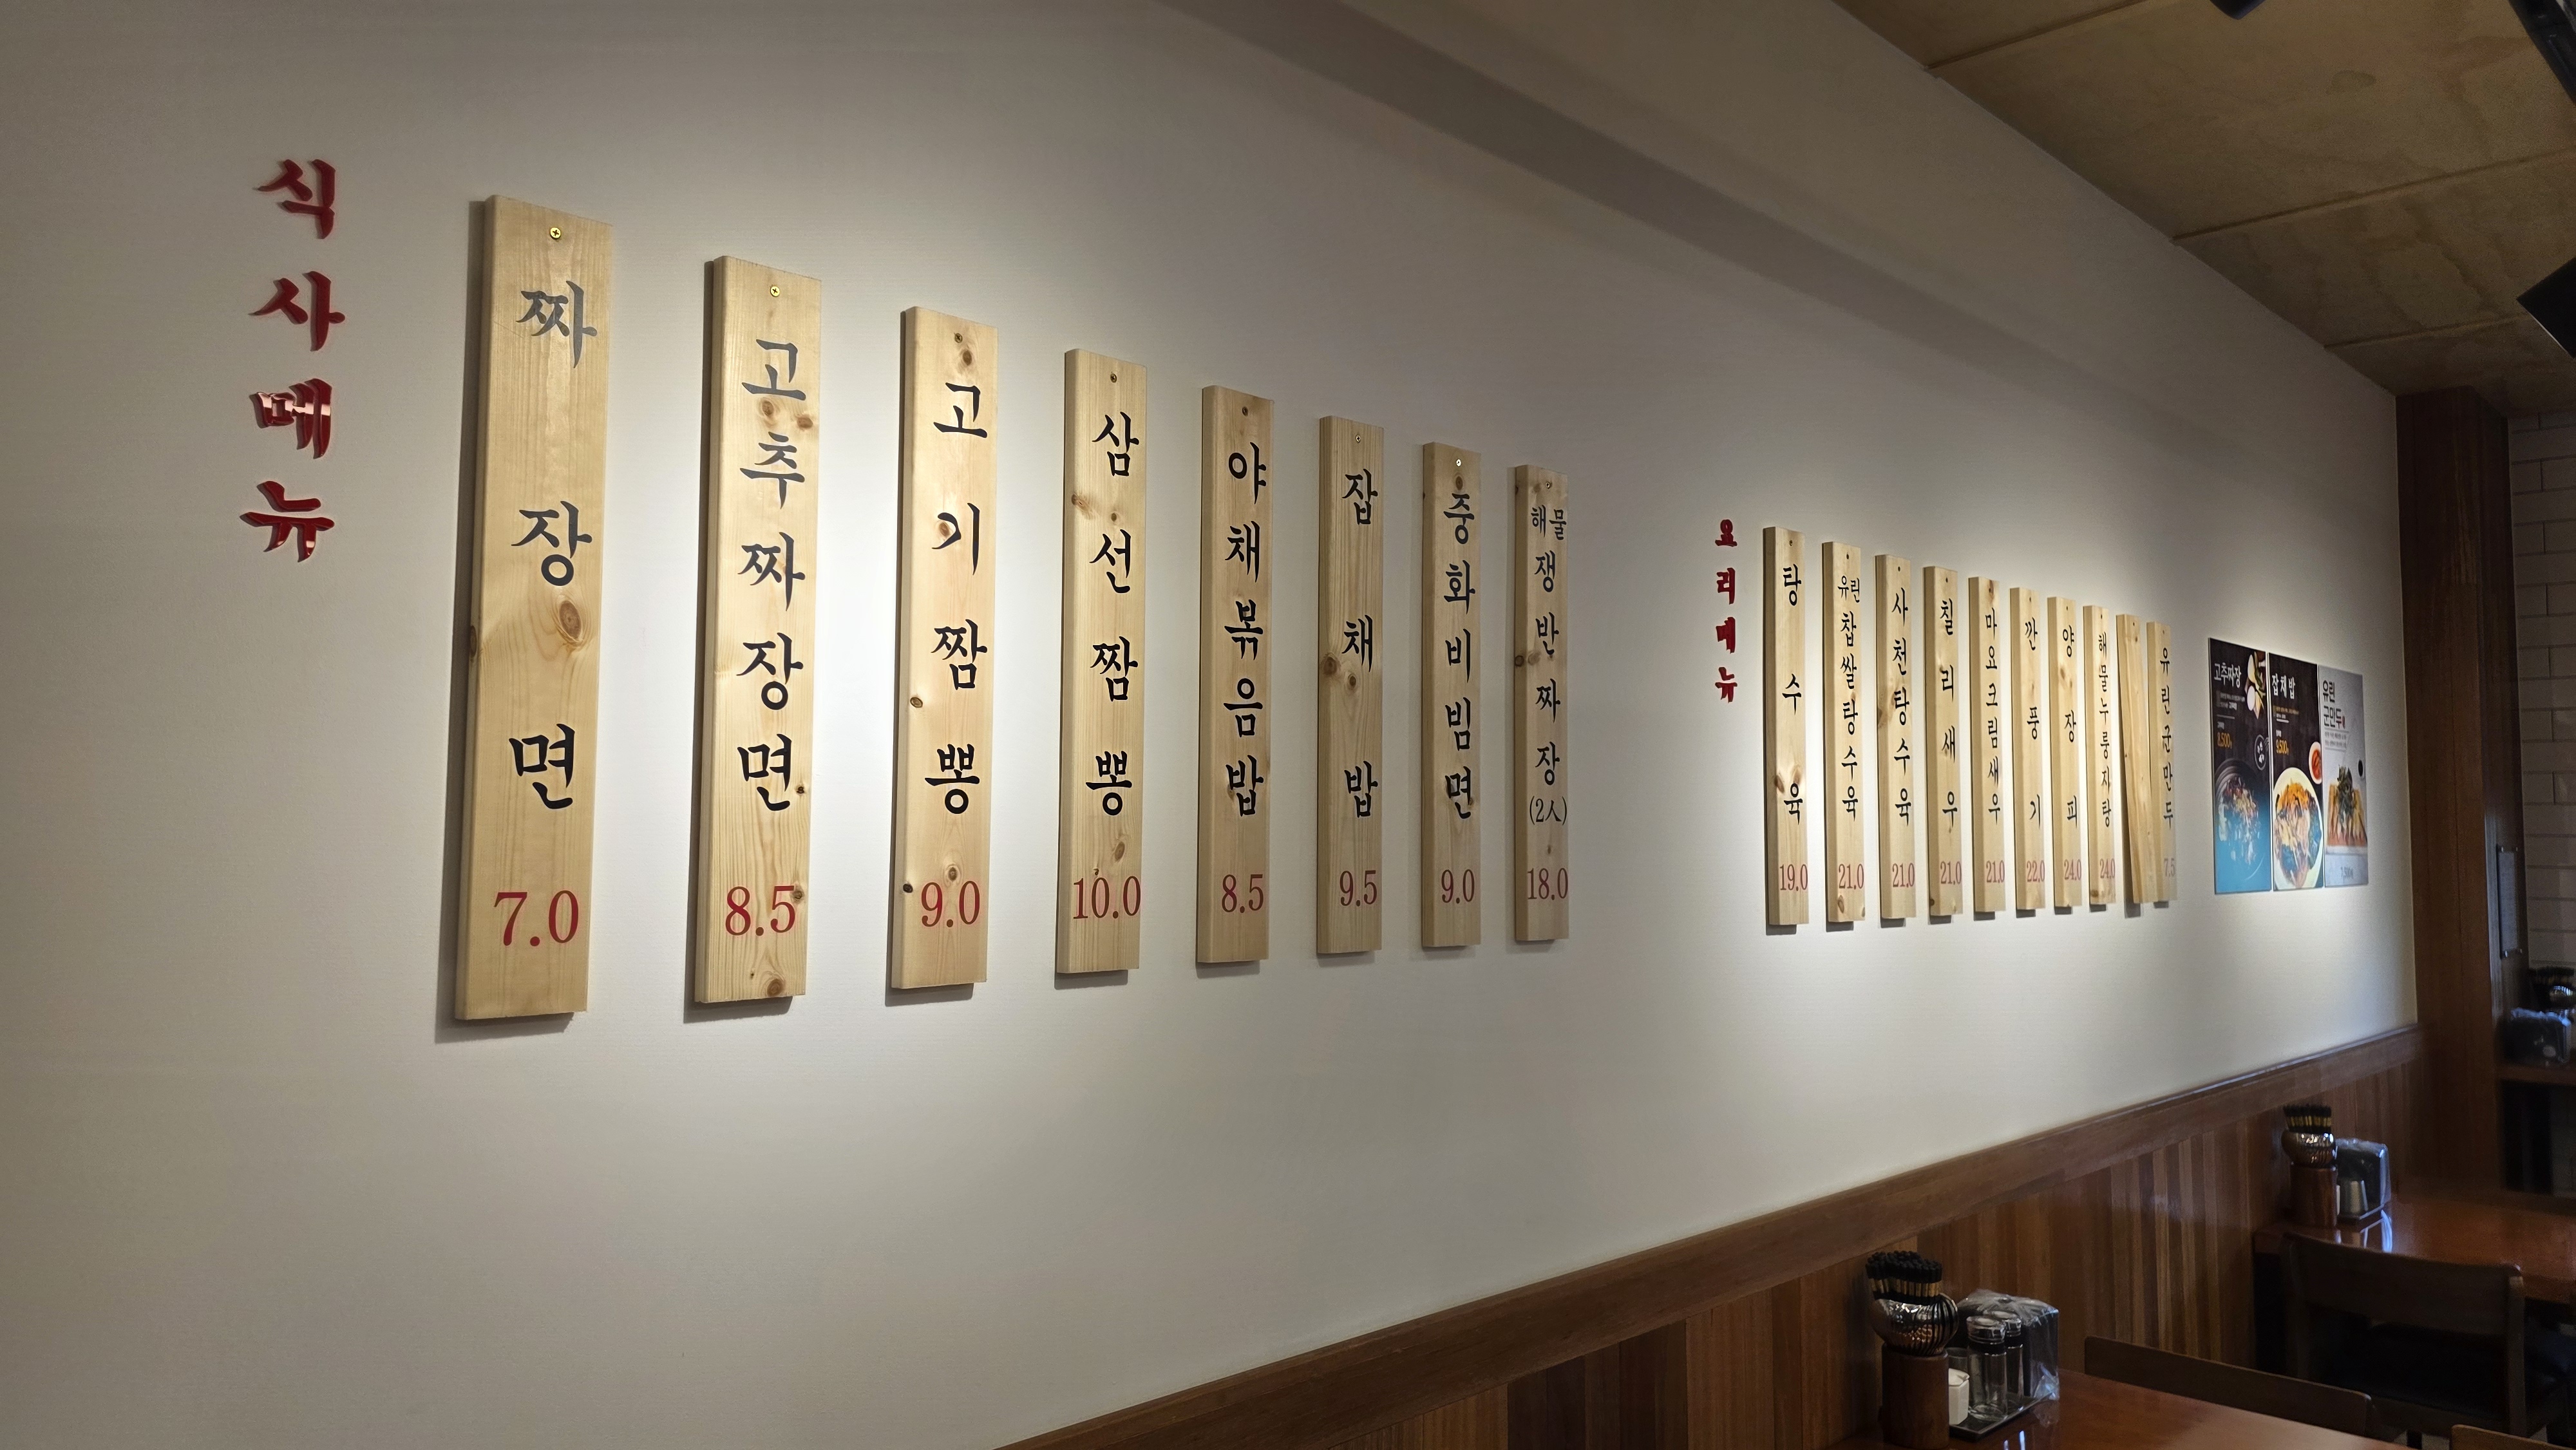 식사메뉴
짜장면
7.0
고추짜장면
8.5
고기짬뽕
9.0
삼선짬뽕
10.0
야채볶음밥
8.5
잡채밥
9.5
중화비빔면
9.0
해물
쟁반짜장
(2人)
18.0
요리메뉴
탕수육
19.0
유린
찹쌀탕수육
21.0
사천탕수육
21.0
칠리새우
21.0
마요크림새우
21.0
깐풍기
22.0
양장피
24.0
해물누룽지탕
24.0
유린군만두
7.5
고추짜장
8,500
잡채밥
9,500
유린
군만두